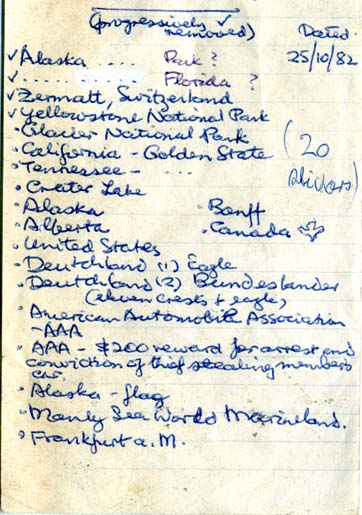 (progressively ✓ removed)
Dated
25/10/82
✓ Alaska .... Park ?
✓ ....... Florida ?
✓ Zermatt, Switzerland
✓ Yellowstone National Park
• Glacier National Park
• California - Golden State
(20 stickers)
• Tennessee - ....
• Crater Lake
• Alaska • Banff
• Alberta • Canada
• United States
• Deutchland (1) Eagle
• Deutchland (2) Bundeslander
(eleven crests + eagle)
• American Automobile Association
- AAA
• AAA - $200 reward for arrest and
conviction of thief stealing members
car
• Alaska - flag
• Manly Sea World Marineland.
• Frankfurt a. M.